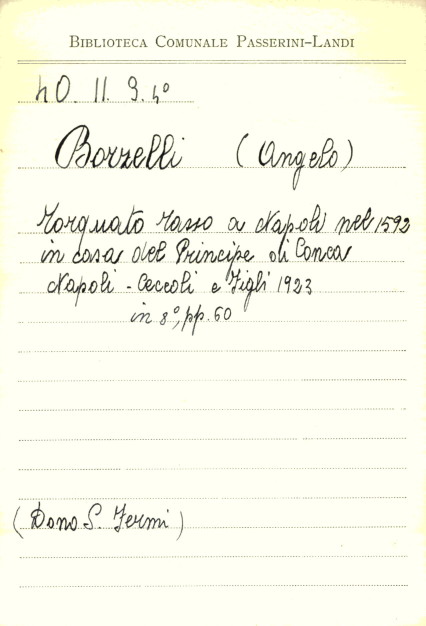 BIBLIOTECA COMUNALE PASSERINI-LANDI
40. II. 9. 4º
Borzelli (Angelo)
Torquato Tasso a Napoli nel 1592
in casa del Principe di Conca
Napoli - Ceccoli e Figli 1923
in 8º, pp. 60
(Dono S. Fermi)